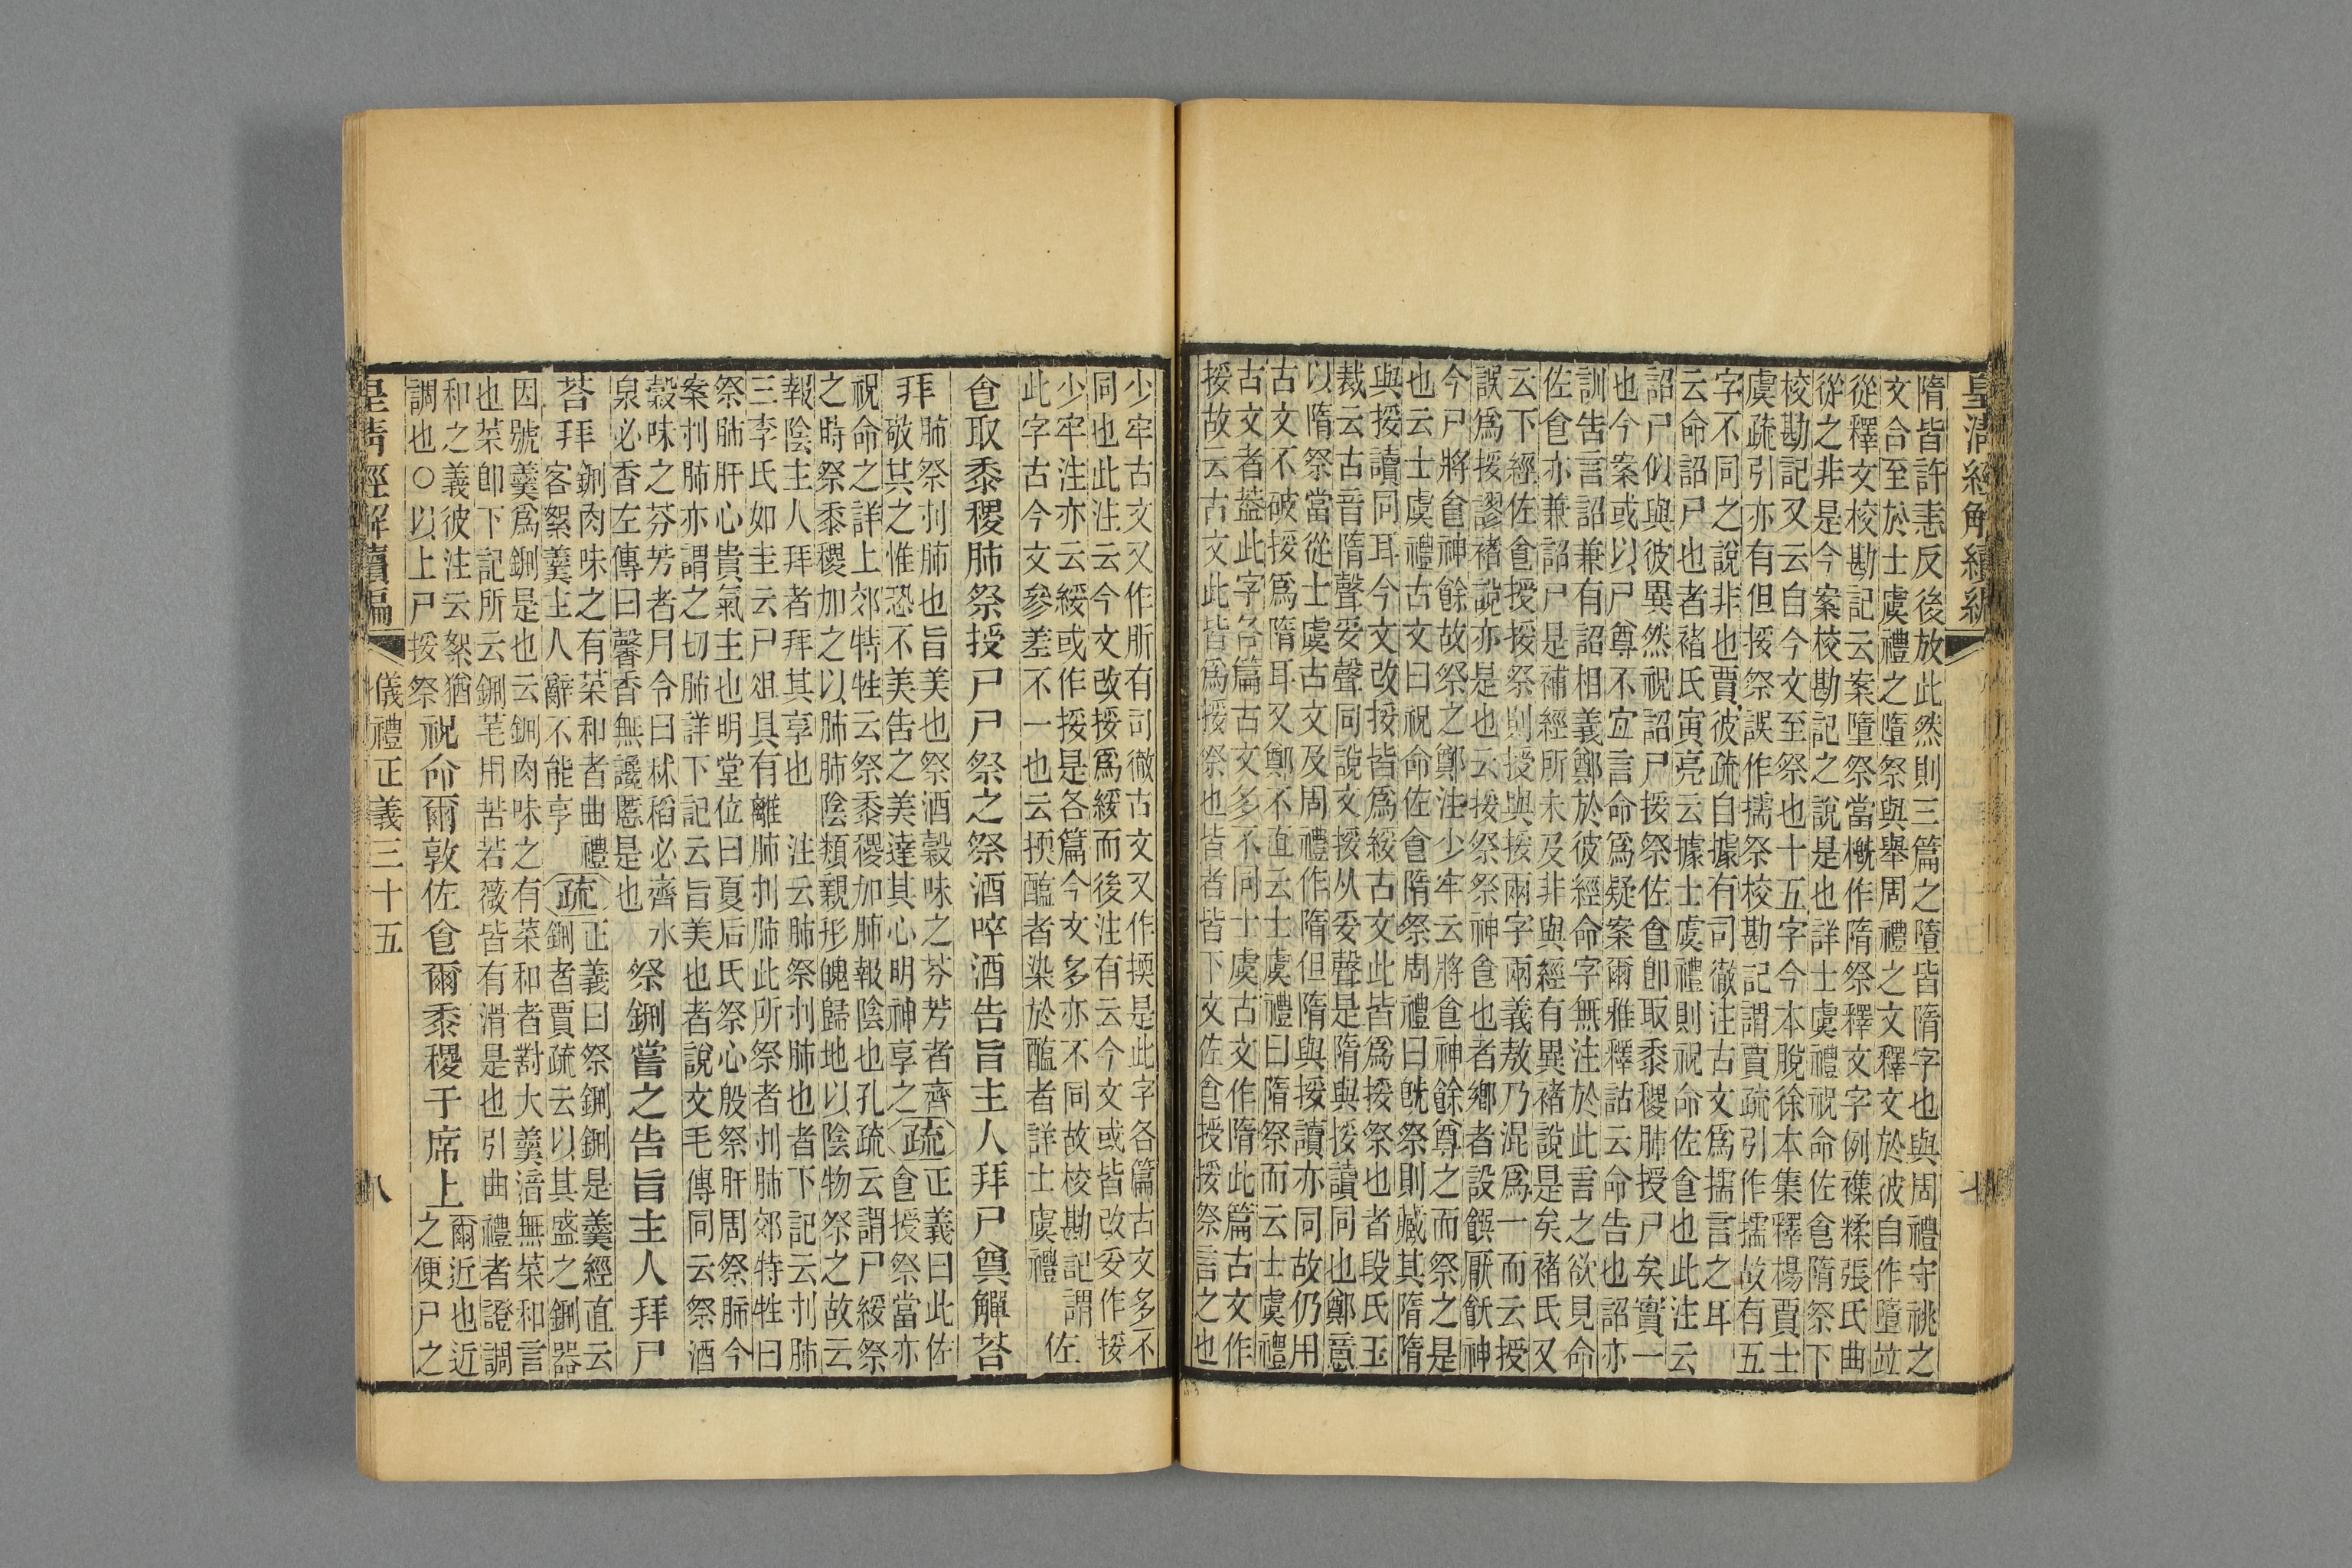 皇清經解續編
七
隋皆許恚反後放此然則三篇之墮皆隋字也與周禮守祧之
文合至於士虞禮之墮祭與舉周禮之文釋文於彼自作墮竝
從釋文校勘記云案墮祭當槪作隋祭釋文字例襍糅張氏曲
從之非是今案校勘記之說是也詳士虞禮祝命佐食隋祭下
校勘記又云自今文至祭也十五字今本脫徐本集釋楊賈士
虞疏引亦有但挼祭誤作擩祭校勘記謂賈疏引作擩故有五
字不同之說非也賈彼疏自據有司徹注古文爲擩言之耳
云命詔尸也者褚氏寅亮云據士虞禮則祝命佐食也此注云
詔尸似與彼異然祝詔尸挼祭佐食卽取黍稷肺授尸矣實一
也今案或以尸尊不宜言命爲疑案爾雅釋詁云命告也詔亦
訓告言詔兼有詔相義鄭於彼經命字無注於此言之欲見命
佐食亦兼詔尸是補經所未及非與經有異褚說是矣褚氏又
云下經佐食授挼祭則授與挼兩字兩義敖乃混爲一而云授
誤爲挼謬褚說亦是也云挼祭祭神食也者鄉者設饌厭飫神
今尸將食神餘故祭之鄭注少牢云將食神餘尊之而祭之是
也云士虞禮古文曰祝命佐食隋祭周禮曰旣祭則藏其隋隋
與挼讀同耳今文改挼皆爲綏古文此皆爲挼祭也者段氏玉
裁云古音隋聲妥聲同說文挼从妥聲是隋與挼讀同也鄭意
以隋祭當從士虞古文及周禮作隋但隋與挼讀亦同故仍用
古文不破挼爲隋耳又鄭不直云士虞禮曰隋祭而云士虞禮
古文者蓋此字各篇古文多不同士虞古文作隋此篇古文作
挼故云古文此皆爲挼祭也皆者皆下文佐食授挼祭言之也
少牢古文又作肵有司徹古文又作㨎是此字各篇古文多不
同也此注云今文改挼爲綏而後注有云今文或皆改妥作挼
少牢注亦云綏或作挼是各篇今文多亦不同故校勘記謂
此字古今文參差不一也云㨎醢者染於醢者詳士虞禮
佐
食取黍稷肺祭授尸尸祭之祭酒啐酒告旨主人拜尸奠觶荅
拜
肺祭刌肺也旨美也祭酒穀味之芬芳者齊
敬其之惟恐不美告之美達其心明神享之
疏
正義曰此佐
食授祭當亦
祝命之詳上郊特牲云祭黍稷加肺報陰也孔疏云謂尸綏祭
之時祭黍稷加之以肺肺陰類親形魄歸地以陰物祭之故云
報陰主人拜者拜其享也　注云肺祭刌肺也者下記云刌肺
三李氏如圭云尸俎具有離肺刌肺此所祭者刌肺郊特牲曰
祭肺肝心貴氣主也明堂位曰夏后氏祭心殷祭肝周祭肺今
案刌肺亦謂之切肺詳下記云旨美也者說文毛傳同云祭酒
穀味之芬芳者月令曰秫稻必齊水
泉必香左傳曰馨香無讒慝是也
祭鉶嘗之告旨主人拜尸
荅拜
鉶肉味之有菜和者曲禮
客絮羹主人辭不能亨
疏
正義曰祭鉶鉶是羹經直云
鉶者賈疏云以其盛之鉶器
因號羹爲鉶是也云鉶肉味之有菜和者對大羹湆無菜和言
也菜卽下記所云鉶芼用苦若薇皆有滑是也引曲禮者證調
和之義彼注云絮猶
調也○以上尸挼祭
祝命爾敦佐食爾黍稷于席上
爾近也近
之便尸之
皇清經解續編
儀禮正義三十五
八